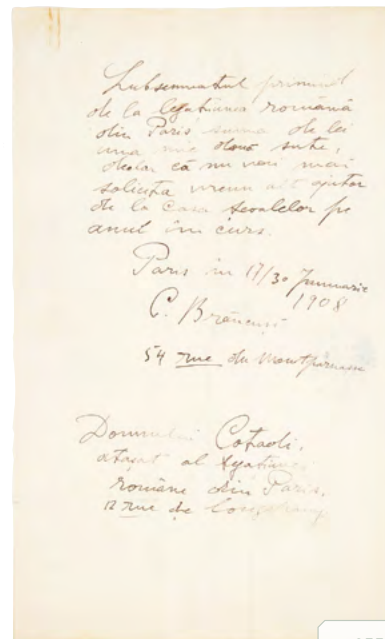 Subsemnatul primind
de la legatiunea română
din Paris suma de lei
una mie două sute,
declar că nu voi mai
solicita vreun alt ajutor
de la Casa Scoalelor pe
anul în curs.
Paris în 17/30 Januarie
1908
C. Brâncuși
54 rue du Montparnasse
Domnului
atașat al legatiunei
române din Paris.
12 rue de